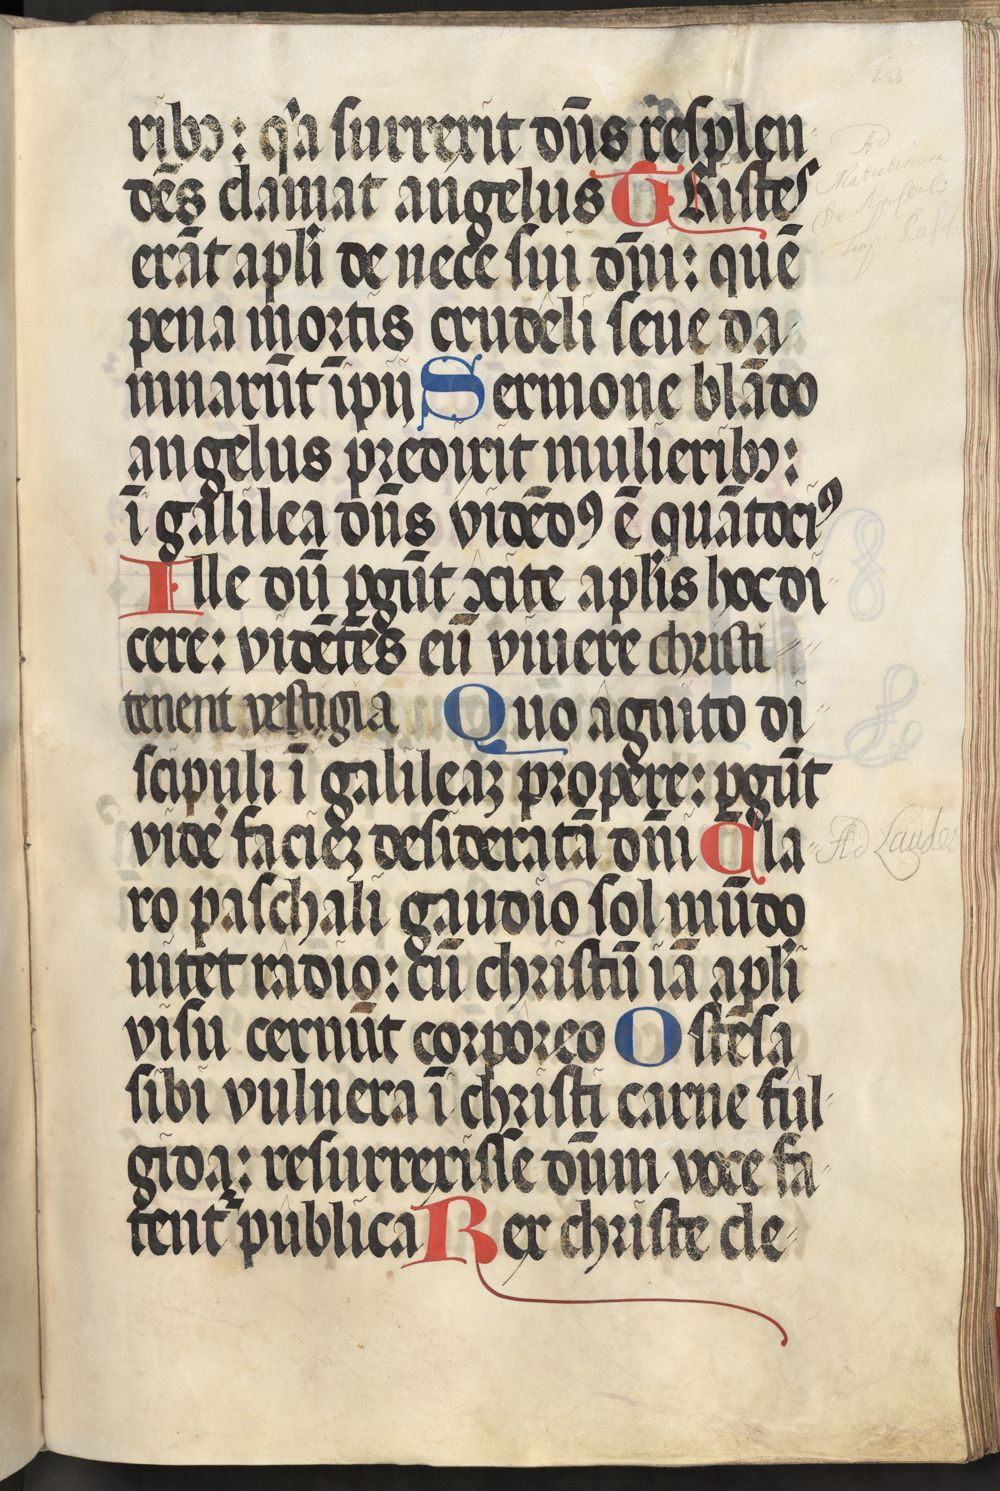 253
ribꝫ: qͥa surrexit dn̄s resplen
dēs clamat angelus TRistes
erāt apl̄i de nece sui dn̄i: quē
pena mortis crudeli seue da
mnarūt īpij Sermone blādo
angelus predixit mulieribꝫ:
ī galilea dn̄s vidēdꝰ ē quātociꝰ
Ille dū ꝑgūt xite apl̄is hoc di
cere: vidētes eū viuere christi
tenent vestigia Quo agnito di
scipuli ī galileaꝫ propere: ꝑgūt
vide facieꝫ desideratā dn̄i Cla
ro paschali gaudio sol mūdo
nitet radio: cū christū iā apl̄i
visu cernūt corporeo Ostēsa
sibi vulnera ī christi carne ful
gida: resurrexisse dn̄um voce fa
tent᷑ publica Rex christe cle
Ad
Matutinum
de Apostoli
Ad Laudes